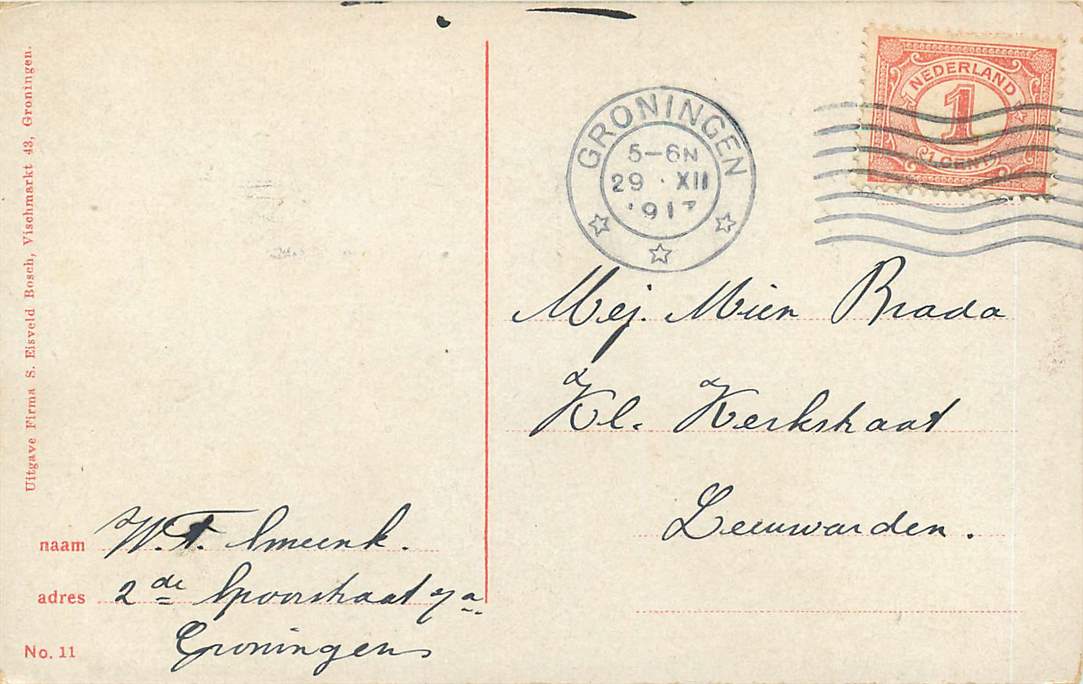 Uitgave Firma S. Eisveld Bosch, Vischmarkt 43, Groningen.
NEDERLAND
1
1 CENT
GRONINGEN
5-6N
29 · XII
1917
Mej. Mien Brada
Kl. Kerkstraat
Leeuwarden.
naam W.F. Smeenk.
adres 2de Spoorstraat 7a
Groningen
No. 11